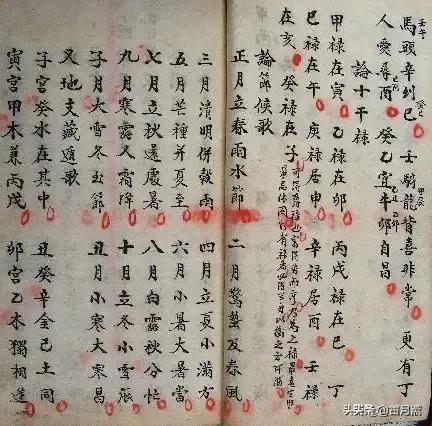 壬午
馬頭辛到巳 壬騎龍背喜非常 更有丁
癸巳
甲辰
人愛尋酉 癸乙宜牛卯自昌
乙丑 乙卯
論十干祿
甲祿在寅 乙祿在卯 丙戊祿在巳 丁
巳祿在午 庚祿居申 辛祿居酉 壬祿
在亥 癸祿在子
論節候歌
正月立春雨水節 二月驚蟄及春風
三月清明併穀雨 四月立夏小滿方
五月芒種并夏至 六月小暑大暑當
七月立秋還處暑 八月白露秋分忙
九月寒露又霜降 十月立冬小雪張
子月大雪冬至節 丑月小寒大寒昌
又地支藏遁歌
子宮癸水在其中 丑癸辛金己土同
寅宮甲木兼丙戊 卯宮乙木獨相逢
头条